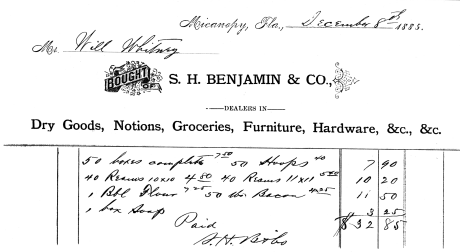 Micanopy, Fla., December 8th 1885.
Mr. Will Whitney
BOUGHT OF S. H. BENJAMIN & CO.,
DEALERS IN
Dry Goods, Notions, Groceries, Furniture, Hardware, &c., &c.
50 boxes complete 7 50 50 Hoops 40 7 90
40 Reams 10x10 4 80 40 Reams 11x11 5 40 10 20
1 Bbl Flour 7 25 50 lbs Bacon 4 25 11 50
1 box Soap 3 25
Paid $32 85
S. H.